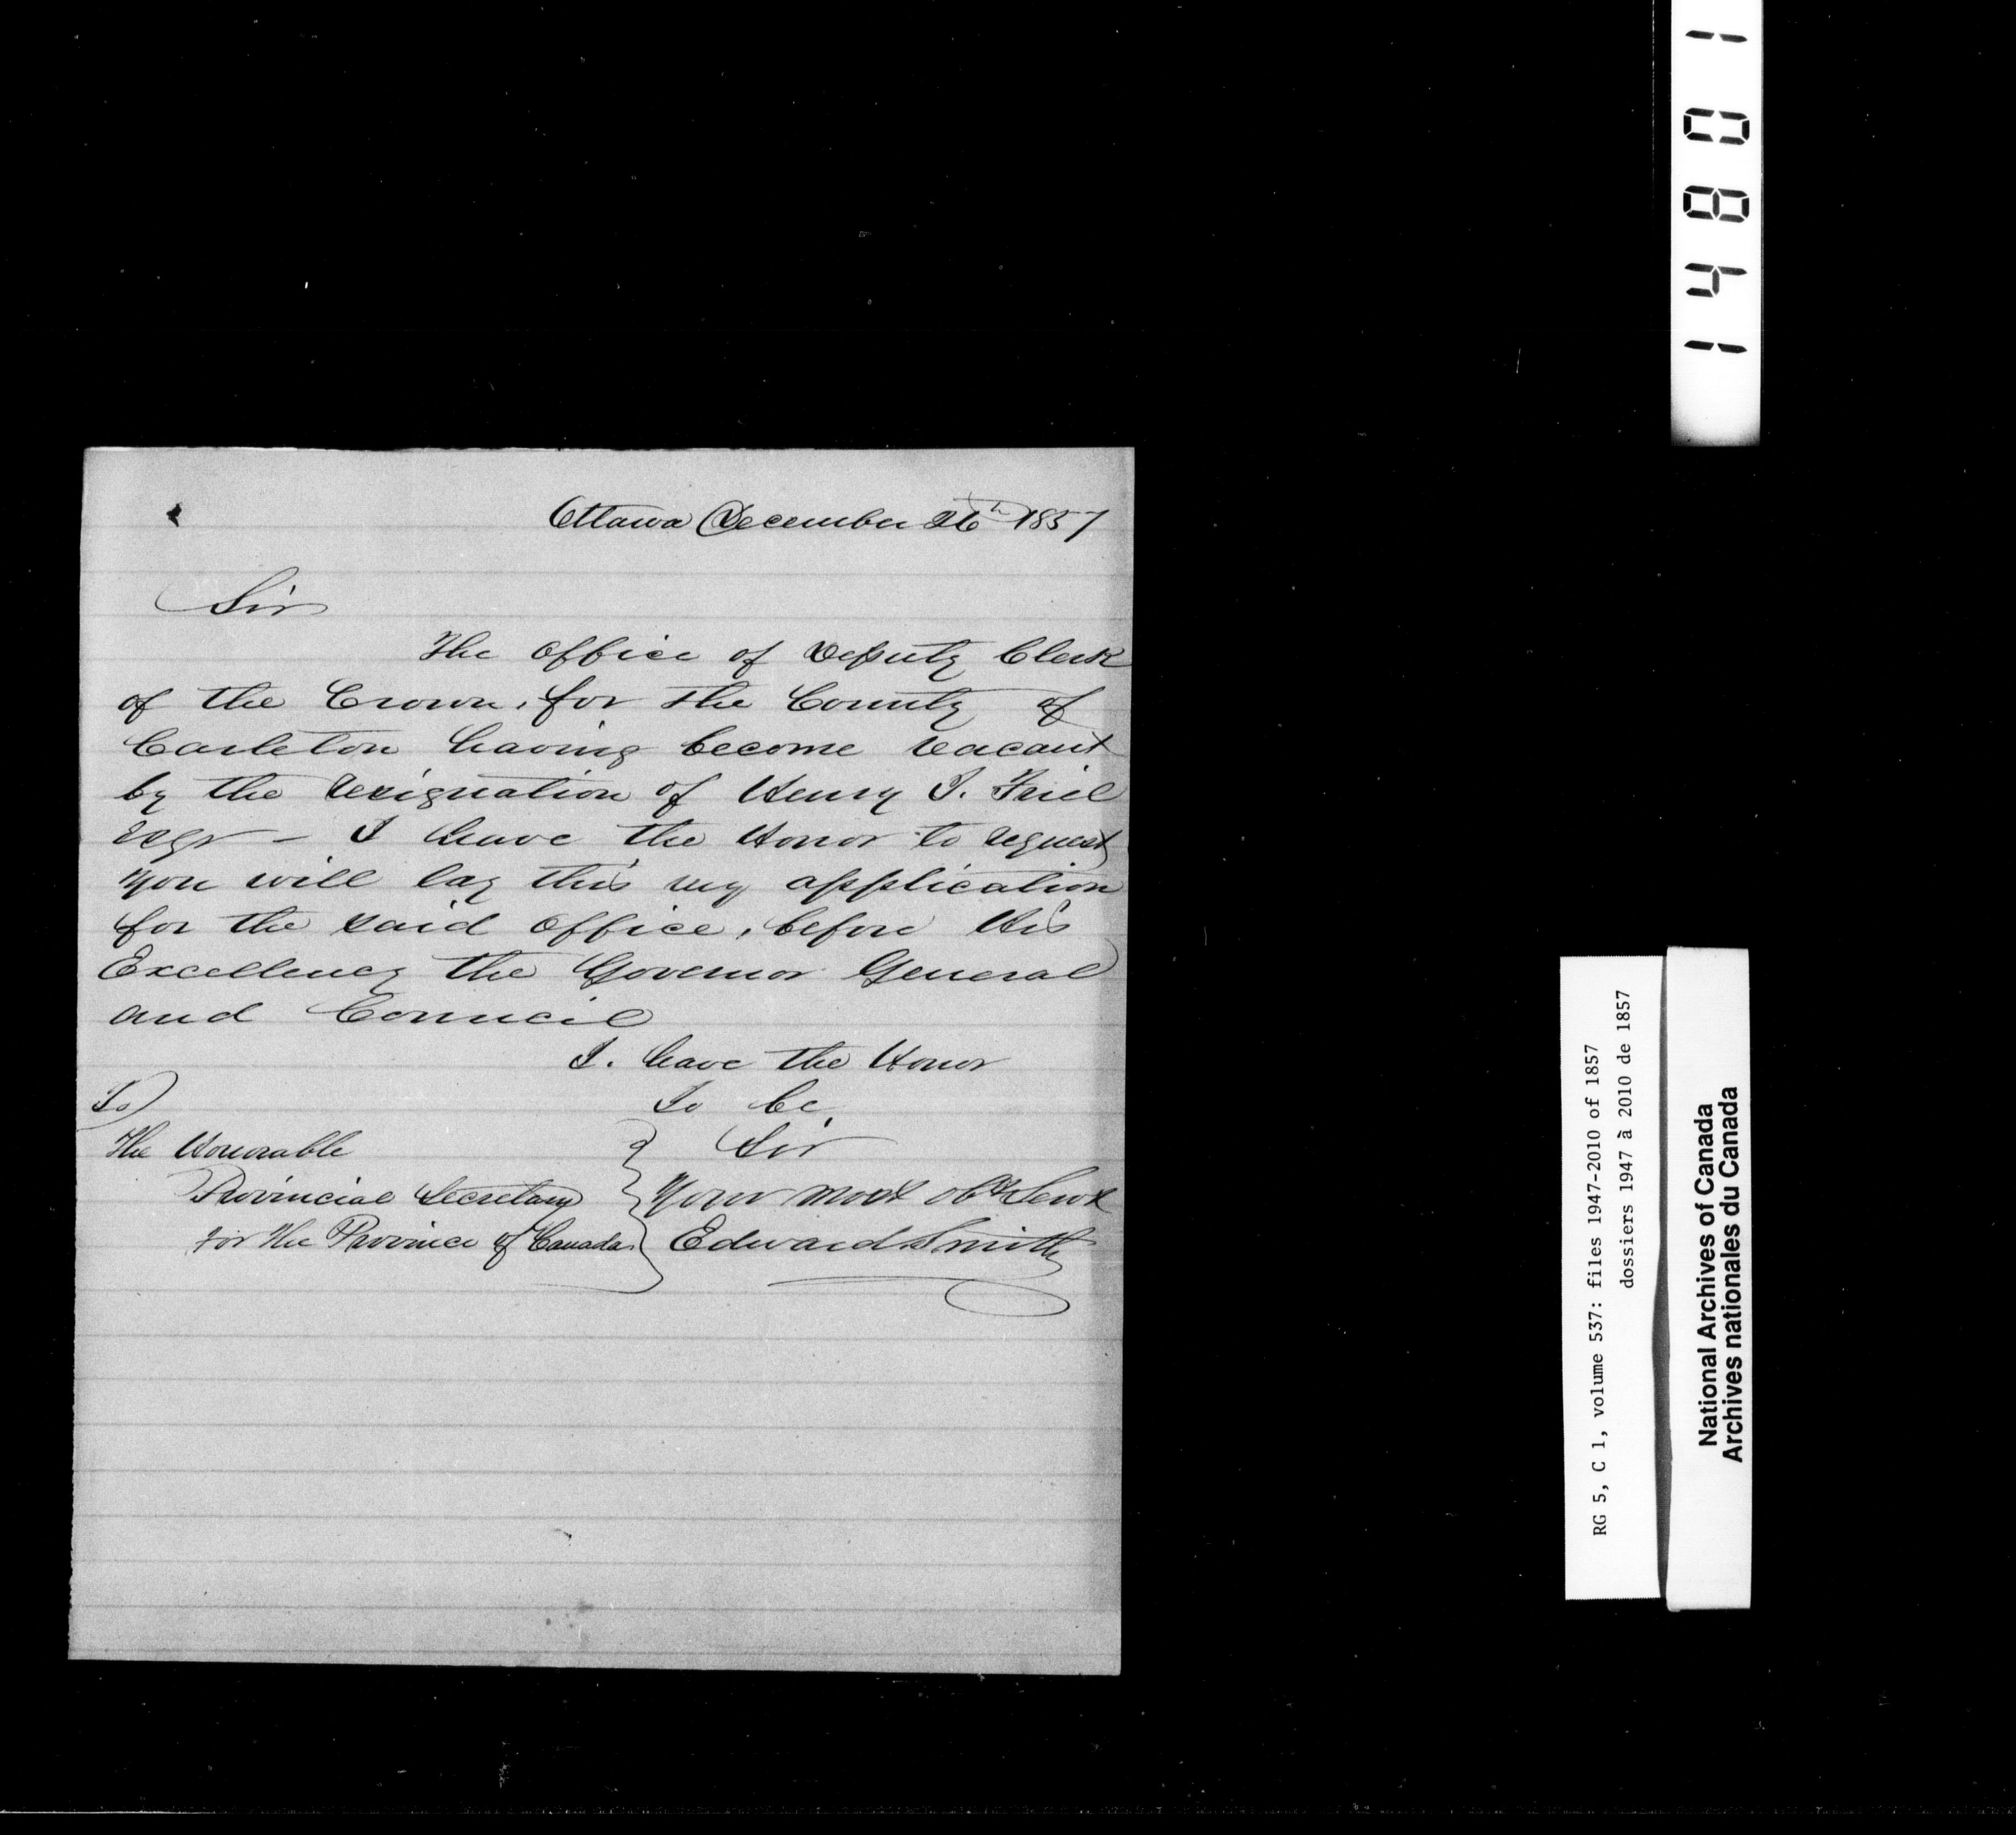 Ottawa December 26th 1857
Sir
The Office of Deputy Clerk
of the Crown, for the County of
Carleton having become vacant
by the resignation of Henry J. Friel
Esqr - I have the Honor to request
you will lay this my application
for the said Office, before His
Excellency the Governor General
and Council
I. have the Honor
To be,
Sir
Your most obt Servt
Edward Smith
To
The Honorable
Provincial Secretary
for the Province of Canada
14801
RG 5, C 1, volume 537: files 1947-2010 of 1857
dossiers 1947 à 2010 de 1857
National Archives of Canada
Archives nationales du Canada